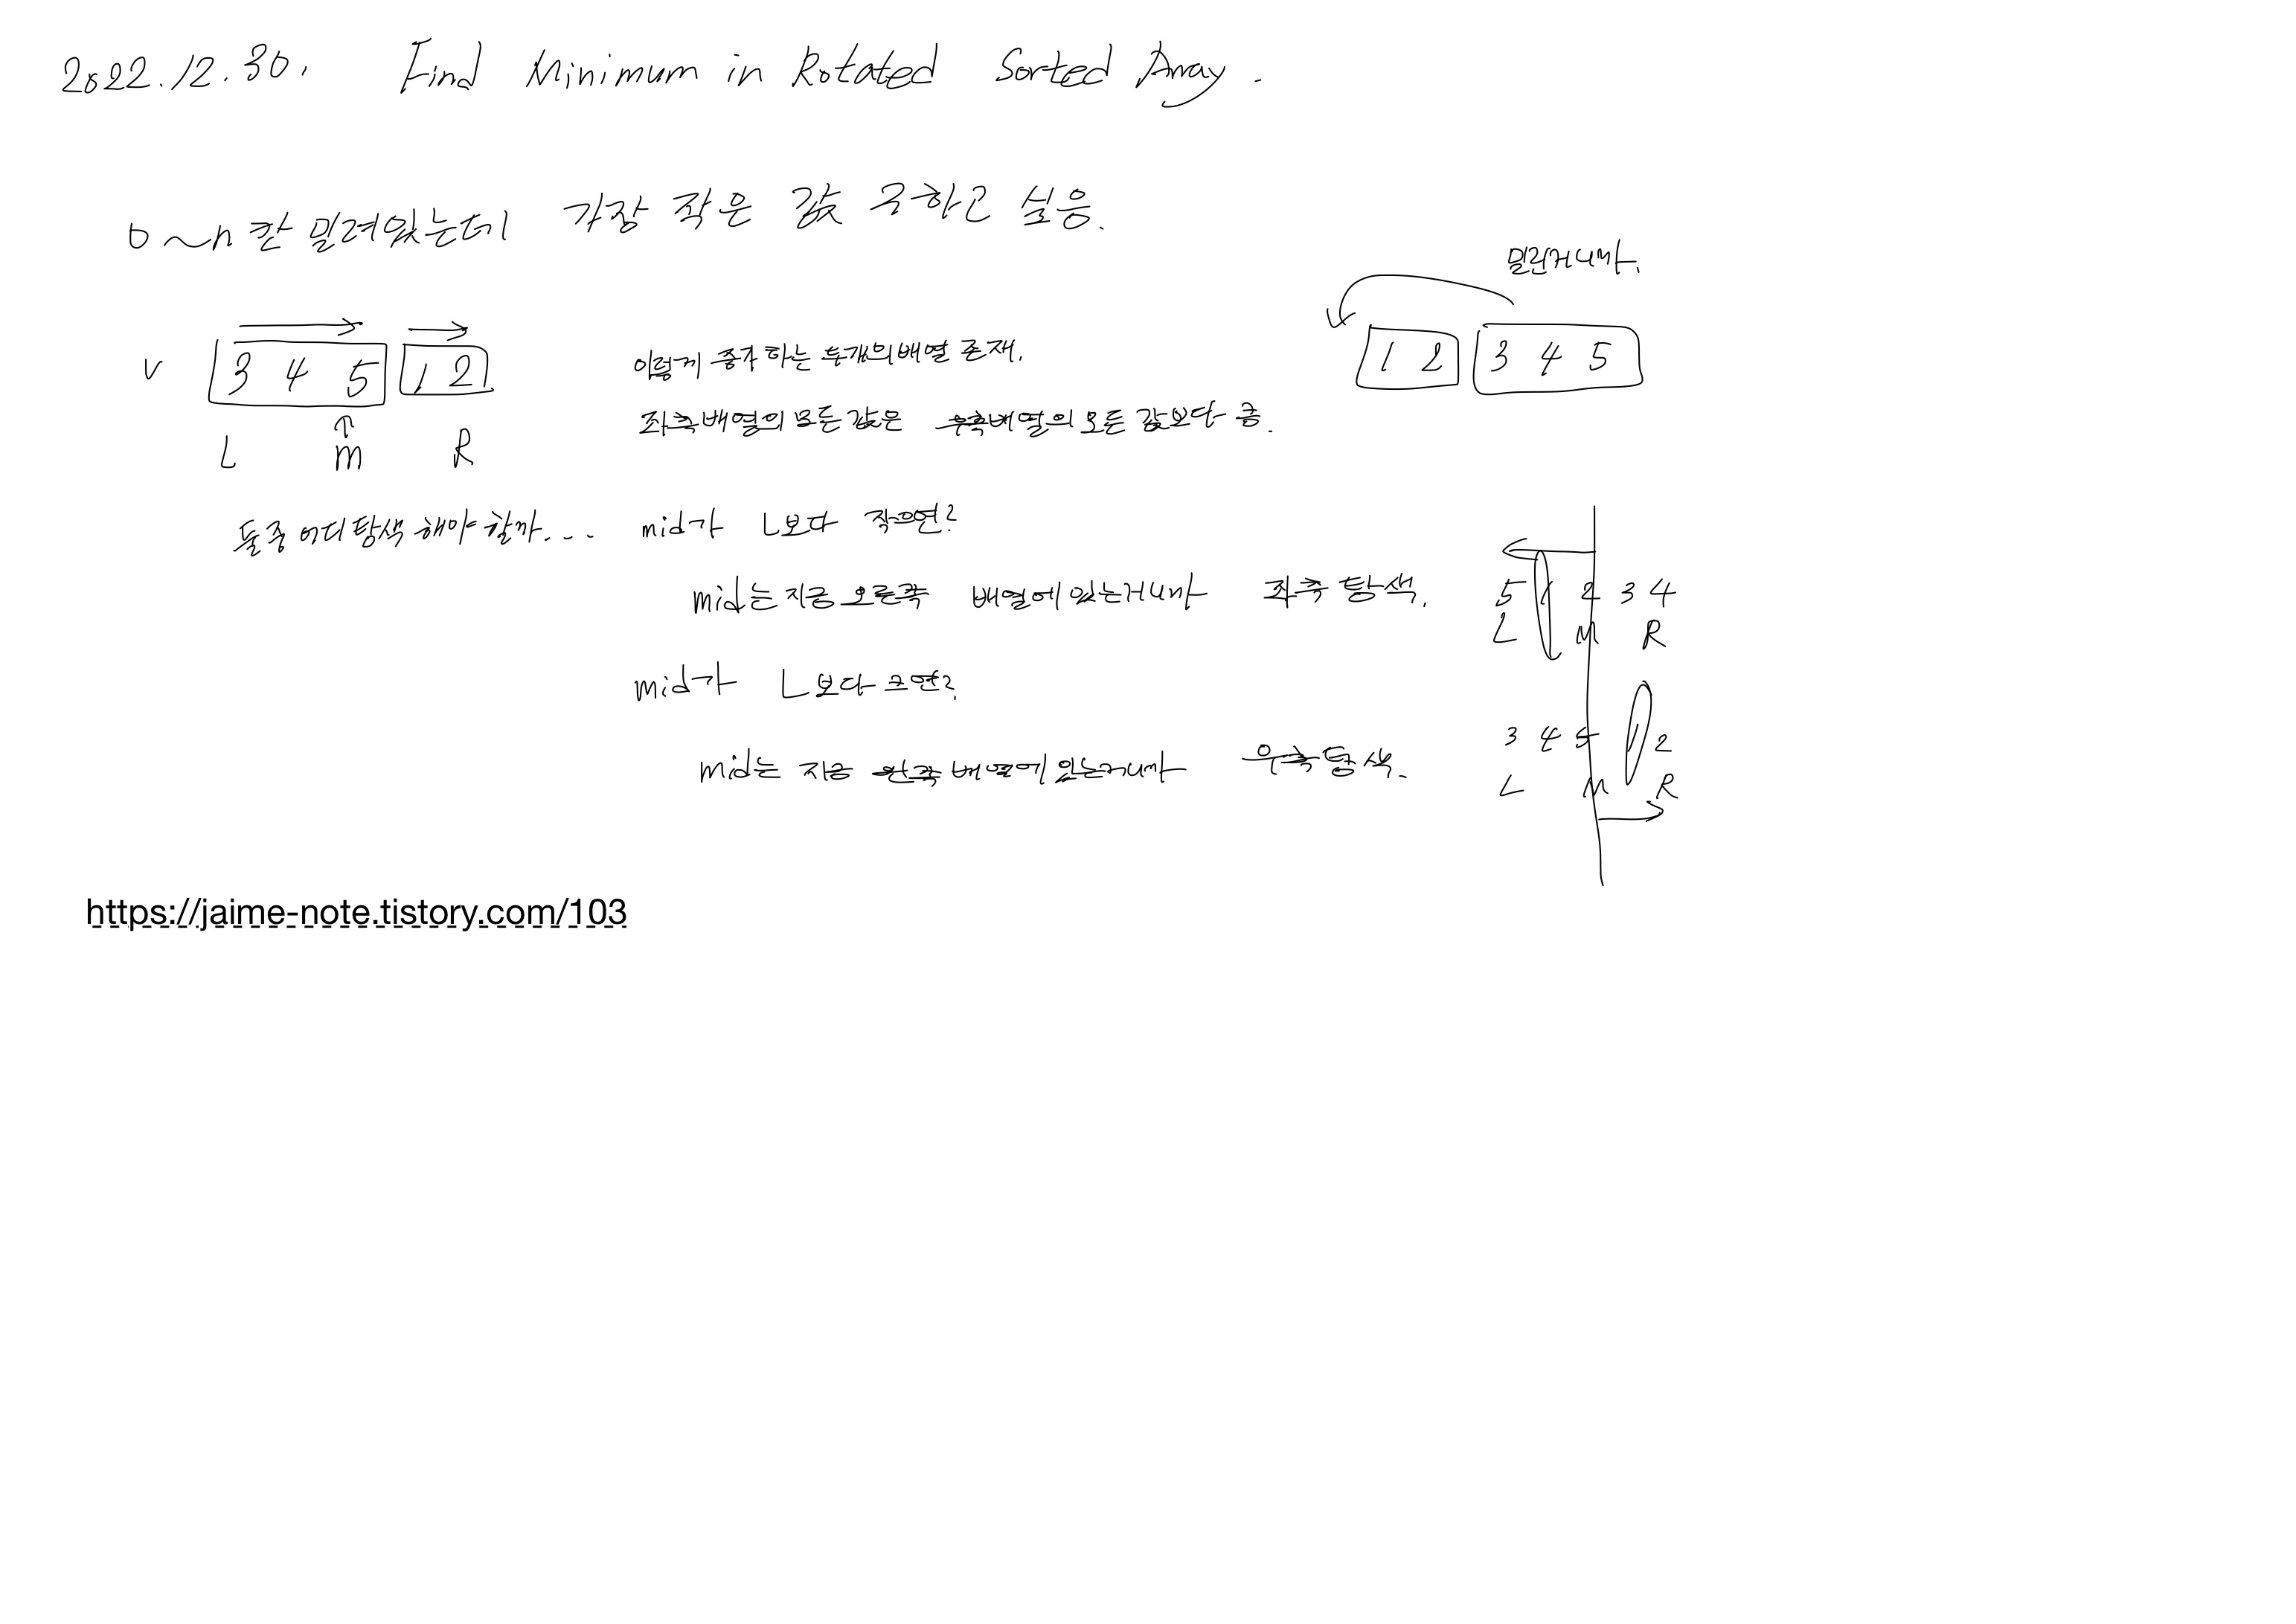 2022.12.30. Find Minimum in Rotated Sorted Array.
0~n칸 밀려있는데 가장 작은 값 구하고 싶음.
밀린거니까.
v 3 4 5 1 2
L m R
이렇게 증가하는 두개의 배열 존재.
좌측 배열의 모든 값은 우측배열의 모든 값보다 큼.
1 2 3 4 5
둘중 어디 탐색 해야 할까... mid가 L보다 작으면?
mid는 지금 오른쪽 배열에 있는거니까 좌측 탐색.
5 1 2 3 4
L M R
mid가 L보다 크면?
mid는 지금 왼쪽 배열에 있는거니까 우측 탐색.
3 4 5 1 2
L M R
https://jaime-note.tistory.com/103